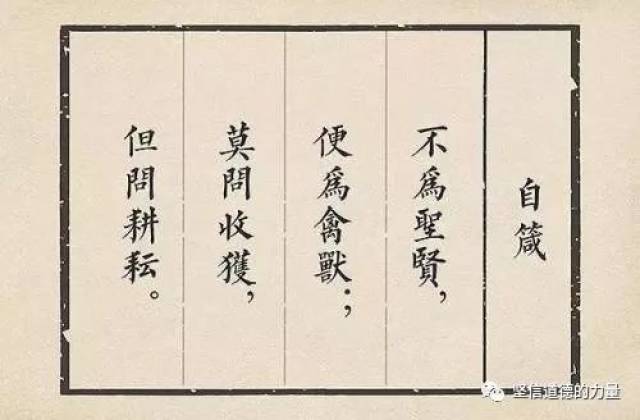 自箴
不為聖賢，
便為禽獸；
莫問收獲，
但問耕耘。
坚信道德的力量